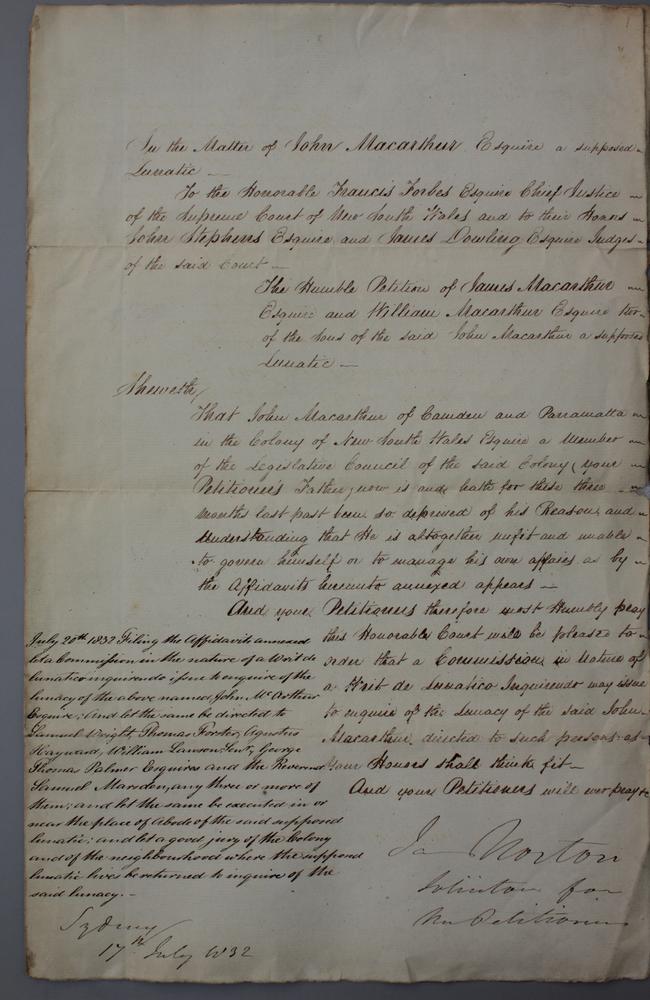 In the Matter of John Macarthur Esquire a supposed
Lunatic —
To the Honorable Francis Forbes Esquire Chief Justice —
of the Supreme Court of New South Wales and to their Honors —
John Stephens Esquire and James Dowling Esquire Judges —
of the said Court —
The Humble Petition of James Macarthur —
Esquire and William Macarthur Esquire two —
of the Sons of the said John Macarthur a supposed
Lunatic —
Sheweth/
That John Macarthur of Camden and Parramatta —
in the Colony of New South Wales Esquire a Member —
of the Legislative Council of the said Colony (your —
Petitioners Father) now is and hath for these three —
months last past been so deprived of his Reason and —
Understanding that He is altogether unfit and unable —
to govern himself or to manage his own affairs as by —
the Affidavits hereunto annexed appears —
And your Petitioners therefore most Humbly pray
this Honorable Court will be pleased to —
order that a Commission in Nature of
a Writ de Lunatico Inquirendo may issue
to enquire of the Lunacy of the said John
Macarthur directed to such persons as —
Your Honors shall think fit —
And your Petitioners will ever pray &c
July 20th 1832 Filing the Affidavits annexed
let a Commission in the nature of a Writ de
lunatico inquirendo issue to enquire of the
lunacy of the above named John McArthur
Esquire; And let the same be directed to
Samuel Wright, Thomas Forster, Agustus
Hayward, William Lawson Senr, George
Thomas Palmer Esquires and the Reverend
Samuel Marsden, any three or more of
them; and let the same be executed in or
near the place of Abode of the said supposed
lunatic; and let a good jury of the Colony
and of the neighbourhood where the supposed
lunatic lives be returned to inquire of the
said lunacy. —
Ja Norton
Solicitor for
the Petitioners
Sydney
17th July 1832